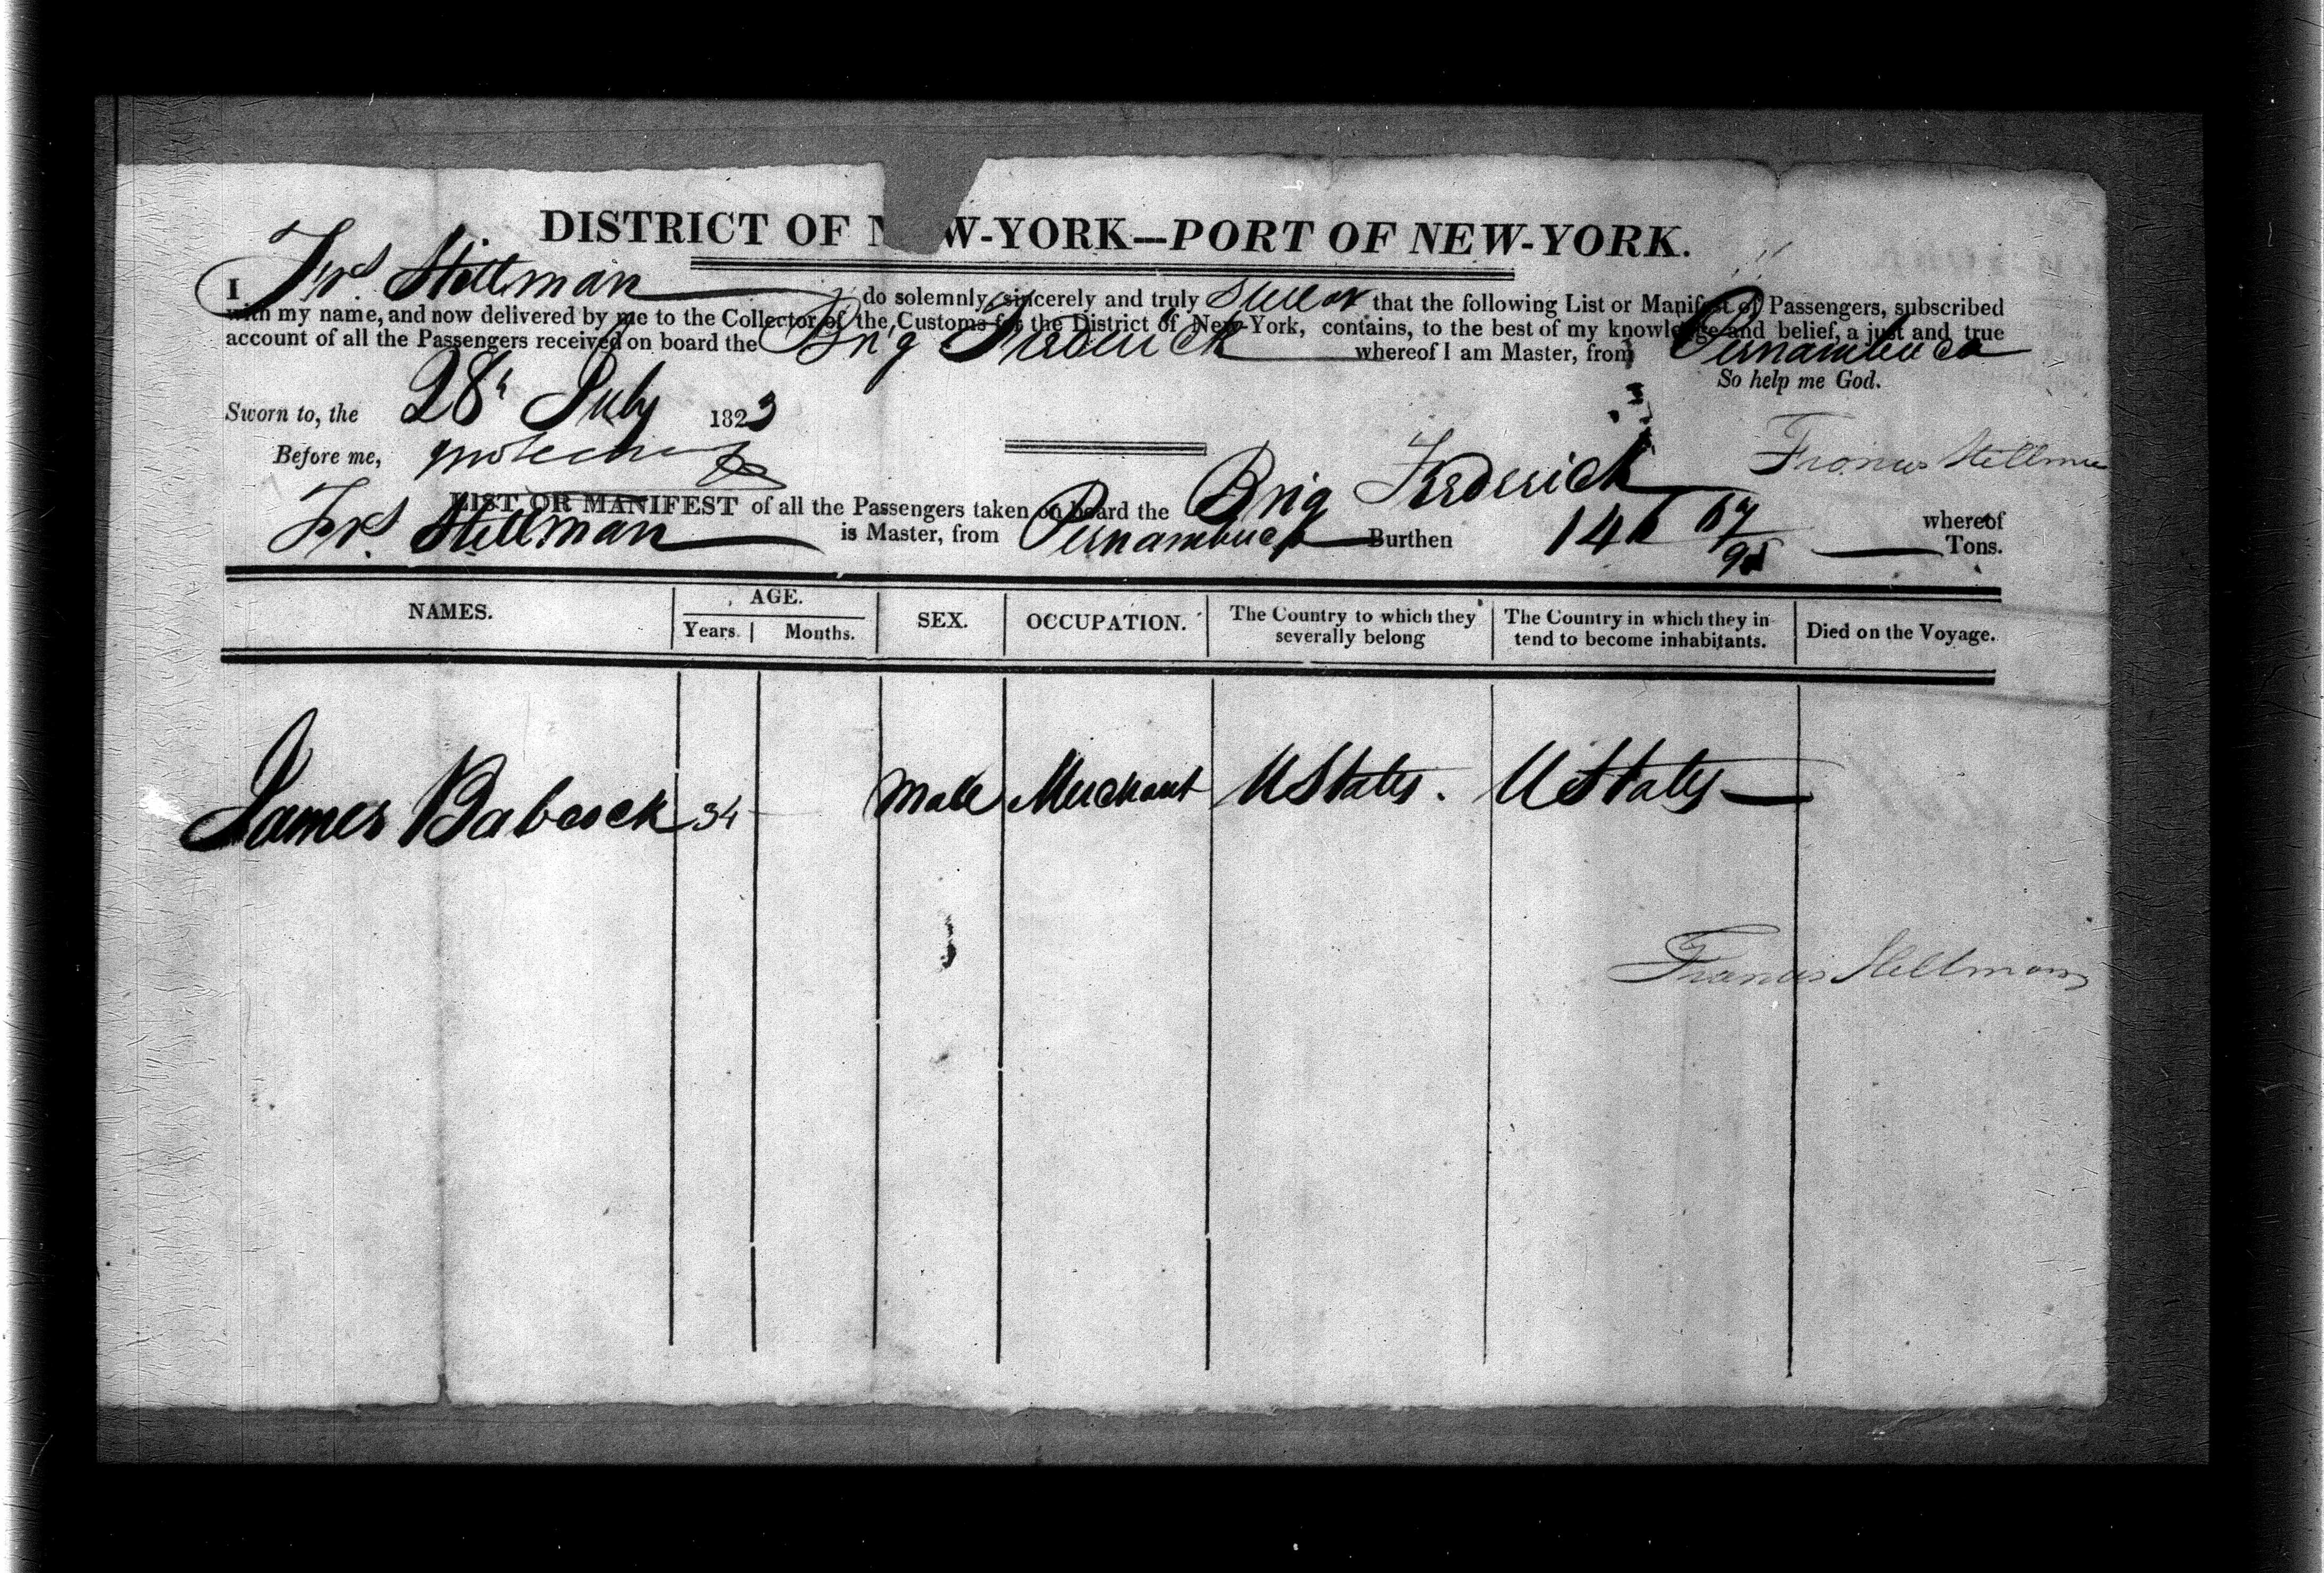 DISTRICT OF N W-YORK—PORT OF NEW-YORK.
I Frs Stillman do solemnly, sincerely and truly Swear that the following List or Manifest of Passengers, subscribed
with my name, and now delivered by me to the Collector of the Customs for the District of New-York, contains, to the best of my knowledge and belief, a just and true
account of all the Passengers received on board the Brig Frederick whereof I am Master, from Pernambuco
So help me God.
Sworn to, the 28h July 1823
Before me,
Francis Stillman
LIST OR MANIFEST of all the Passengers taken on board the Brig Frederick whereof
Frs Stillman is Master, from Pernambuco Burthen 146 67/95 Tons.
NAMES. AGE. SEX. OCCUPATION. The Country to which they severally belong The Country in which they in tend to become inhabitants. Died on the Voyage.
Years. Months.
James Babcock 34 Male Merchant UStates. UStates
Francis Stillman